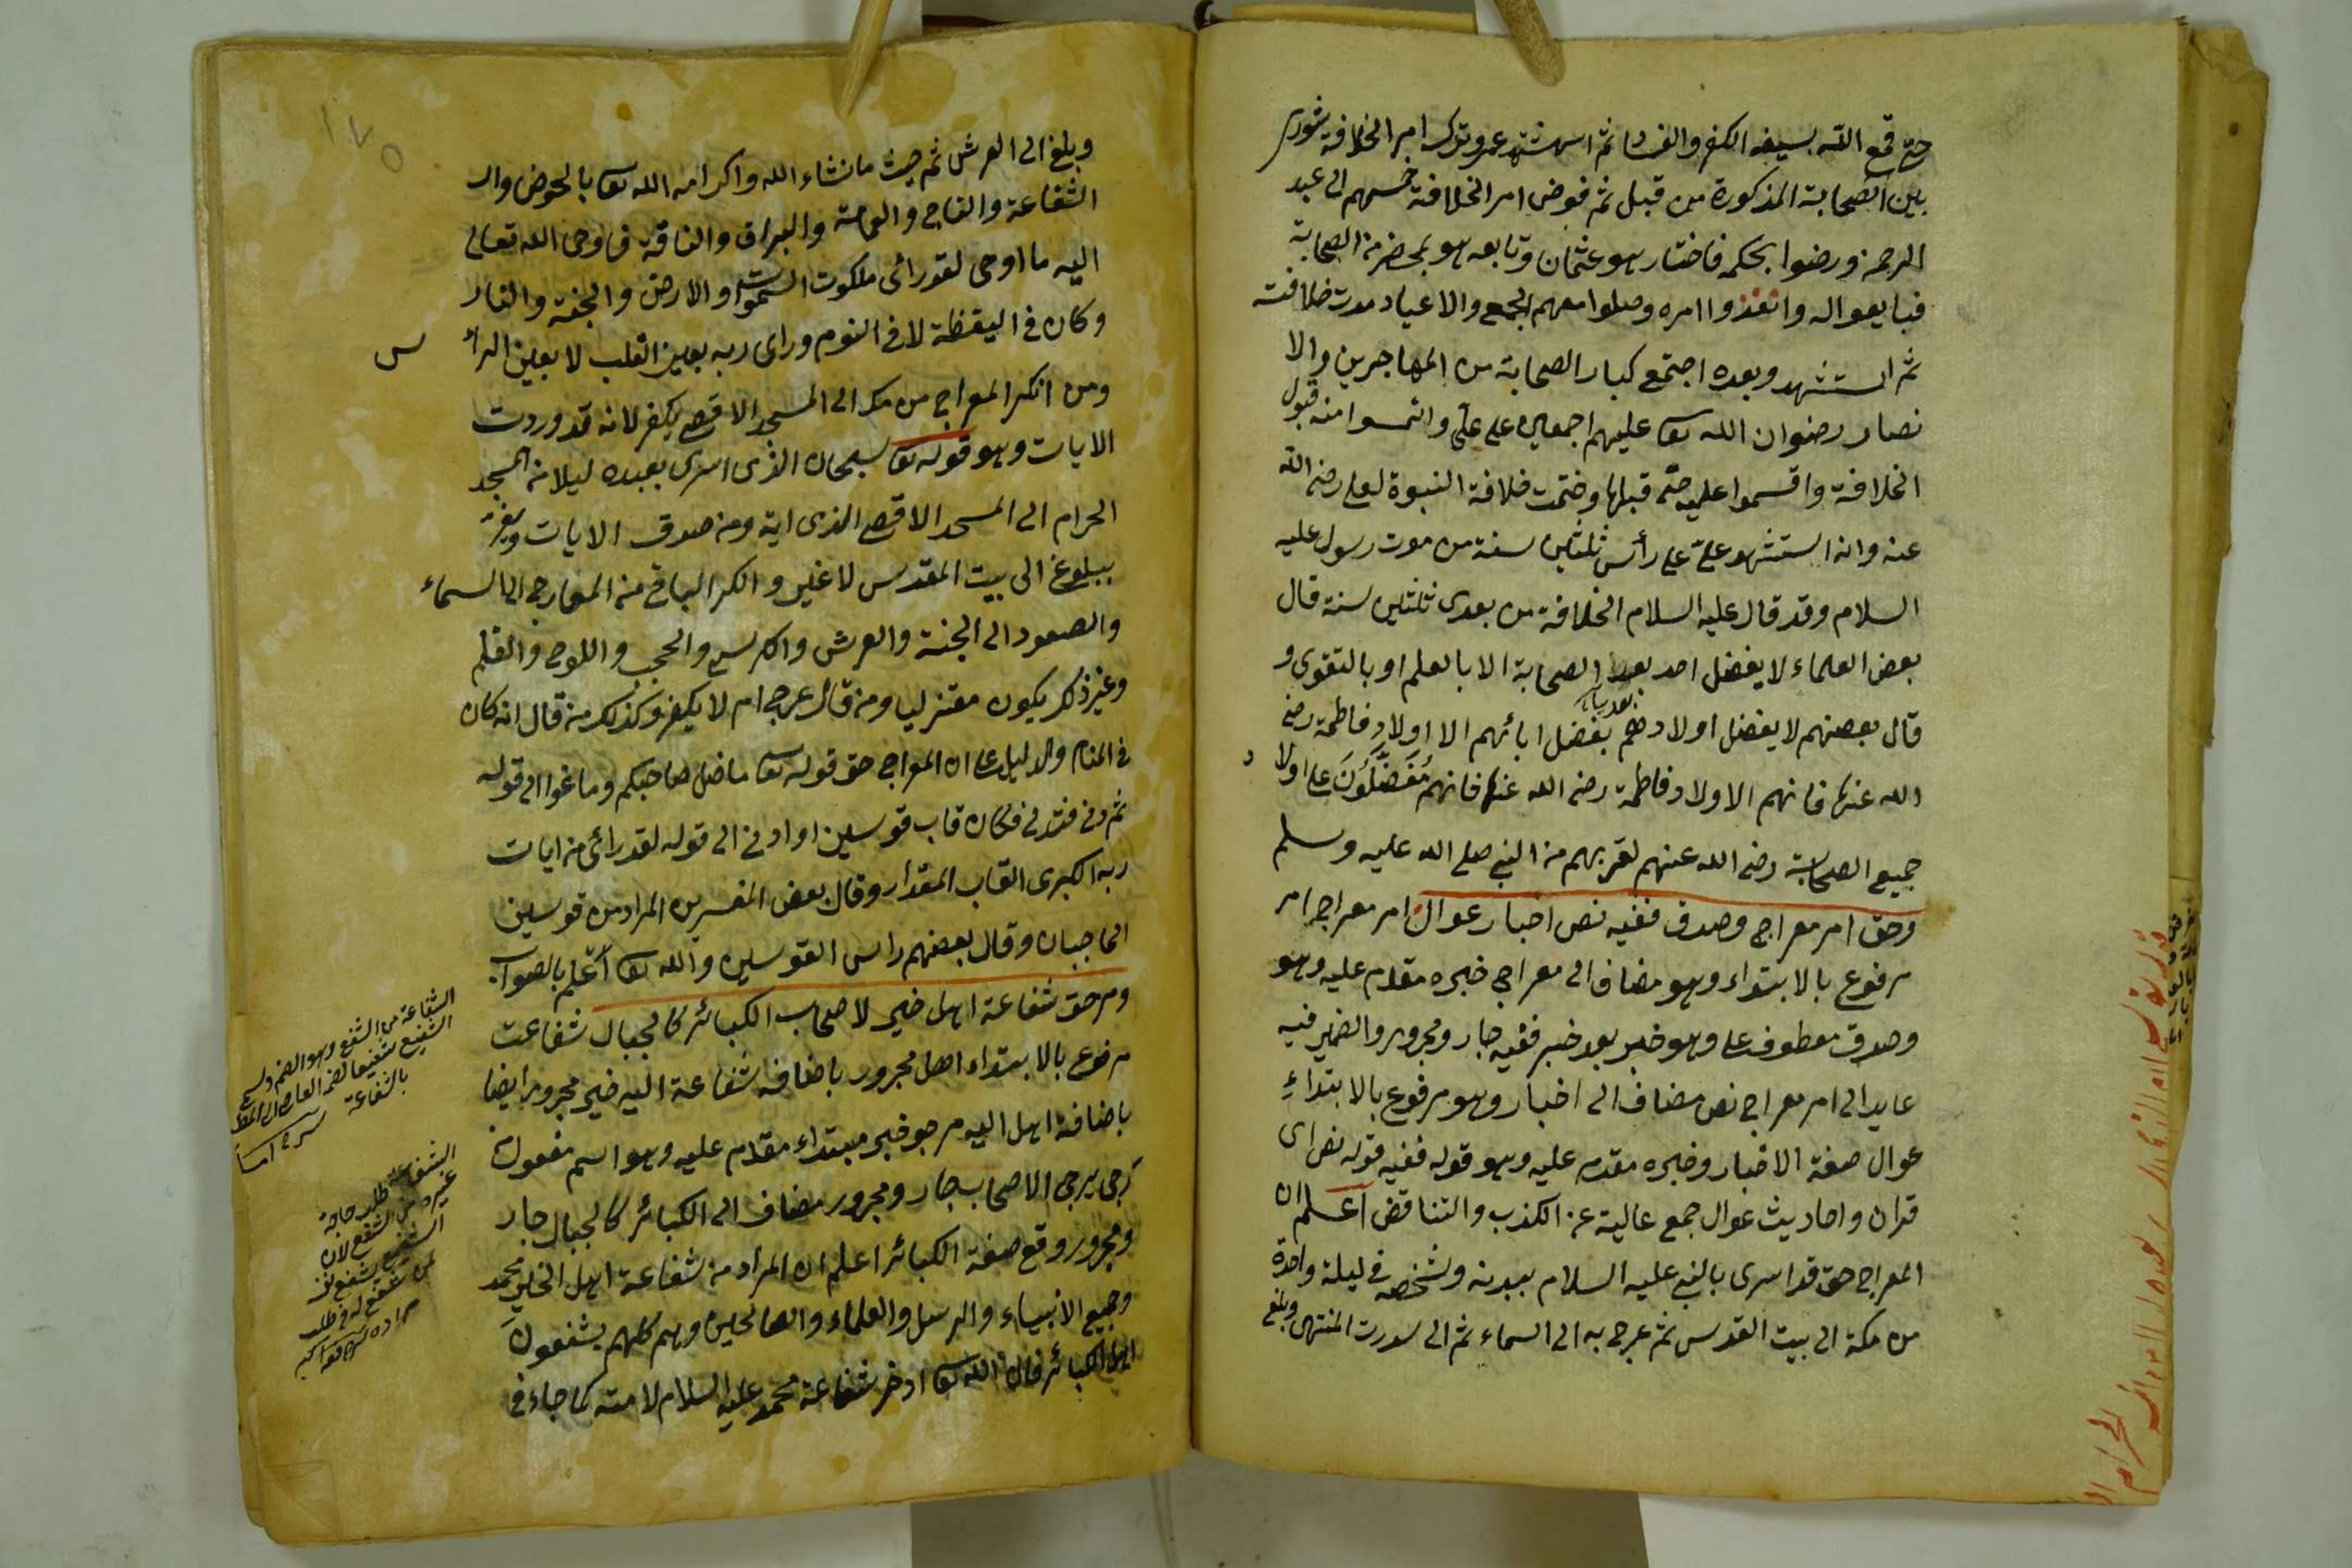 حتى قمع الله بسيفه الكفر والفساد ثم استشهد عمر وترك امر الخلافة شورى
بين الصحابة المذكورة من قبل ثم فوض امر الخلافة خمسهم الى عبد
الرحمن ورضوا بحكمه فاختار هو عثمان وتابعه هو بمحضر من الصحابة
فبايعوا له وانفذوا امره وصلوا معهم الجمع والاعياد مدت خلافته
ثم استشهد وبعده اجتمع كبار الصحابة من المهاجرين والا
نصار رضوان الله تعا عليهم اجمعين على علي والتمسوا منه قبول
الخلافة واقسموا عليه حتى قبلها وختمت خلافة النبوة لعلي رضي الله
عنه وانه استشهد علي على رأس ثلثين سنة من موت رسول عليه
السلام وقد قال عليه السلام الخلافة من بعدى ثلثين سنة قال
بعض العلماء لا يفضل احد بعد الصحابة الا بالعلم او بالتقوى و
قال بعضهم لا يفضل اولادهم بفضل ابائهم الا اولاد فاطمة رضي
الله عنها فانهم الاولاد فاطمة رضي الله عنها فانهم مُفَضَّلُونَ على اولا د
جميع الصحابة رضي الله عنهم لقربهم من النبي صلى الله عليه وسلم
وحق امر معراج وصدق ففيه نص اخبار عوال امر معراج امر
مرفوع بالابتداء وهو مضاف الى معراج خبره مقدم عليه وهو
وصدق معطوف على وهو خبر بعد خبر ففيه جار ومجرور والضمير فيه
عايد الى امر معراج نص مضاف الى اخبار وهو مرفوع بالابتداءِ
عوال صفة الاخبار وخبره مقدم عليه وهو قوله ففيه قوله نص اى
قران واحاديث عوال جمع عالية عن الكذب والتناقض اعلم ان
المعراج حق قد اسرى بالنبي عليه السلام ببدنه وشخصه في ليلة واحدة
من مكة الى بيت القدس ثم عرج به الى السماء ثم الى سدرت المنتهى وبلغ
١٧٥
وبلغ الى العرش ثم حيث ما نشاء الله واكرامه الله تعا بالحوض وال
الشفاعة والتاج والعمامة والبراق والناقة فاوحى الله تعالى
اليه ما اوحى لقد رائى ملكوت السموات والارض والجنة والنار
وكان في اليقظة لا في النوم وراى ربه بعين القلب لا بعين الرأ س
ومن انكر المعراج من مكة الى المسجد الاقصى يكفر لانه قد وردت
الايات وهو قوله تعا سبحان الذى اسرى بعبده ليلا من المسجد
الحرام الى المسجد الاقصى الذى اية ومن صدق الايات ويقر
ببلوغ الى بيت المقدس لا غير وانكر الباقي من المعارج الى السماء
والصعود الى الجنة والعرش والكرسي والحجب واللوح والقلم
وغير ذلك يكون معتزليا ومن قال عرج ام لا يكفر وكذلك من قال انه كان
في المنام والدليل على ان المعراج حق قوله تعا ما ضل صاحبكم وما غوا الى قوله
ثم دنى فتدلى فكان قاب قوسين او ادنى الى قوله لقد رائى من ايات
ربه الكبرى القاب المقدار وقال بعض المفسرين المراد من قوسين
الحاجبان وقال بعضهم راس القوسين والله تعا اعلم بالصواب
ومرجو شفاعة اهل خير لاصحاب الكبائر كالجبال شفاعت
مرفوع بالابتداء اهل مجرور باضافة شفاعة اليه خير مجرور ايضا
باضافة اهل اليه مرجو خبر مبتداء مقدم عليه وهو اسم مفعول من
رجى يرجى الاصحاب جار ومجرور مضاف الى الكبائر كالجبال جار
ومجرور وقع صفة الكبائر اعلم ان المراد من شفاعة اهل الخير محمد
وجميع الانبياء والرسل والعلماء والصالحين وهم كلهم يشفعون
اهل الكبائر فان الله تعا ادخر شفاعة محمد عليه السلام لامته كما جاء في
الشفاعة من الشفع وهو الضم وسمي
الشفيع شفيعا لضم العاصى الى المطيع
بالشفاعة
الشفاعة طلب حاجة
غيره من الشفع لان
الشفيع يشفع
لمن شفع له في طلب
مراده